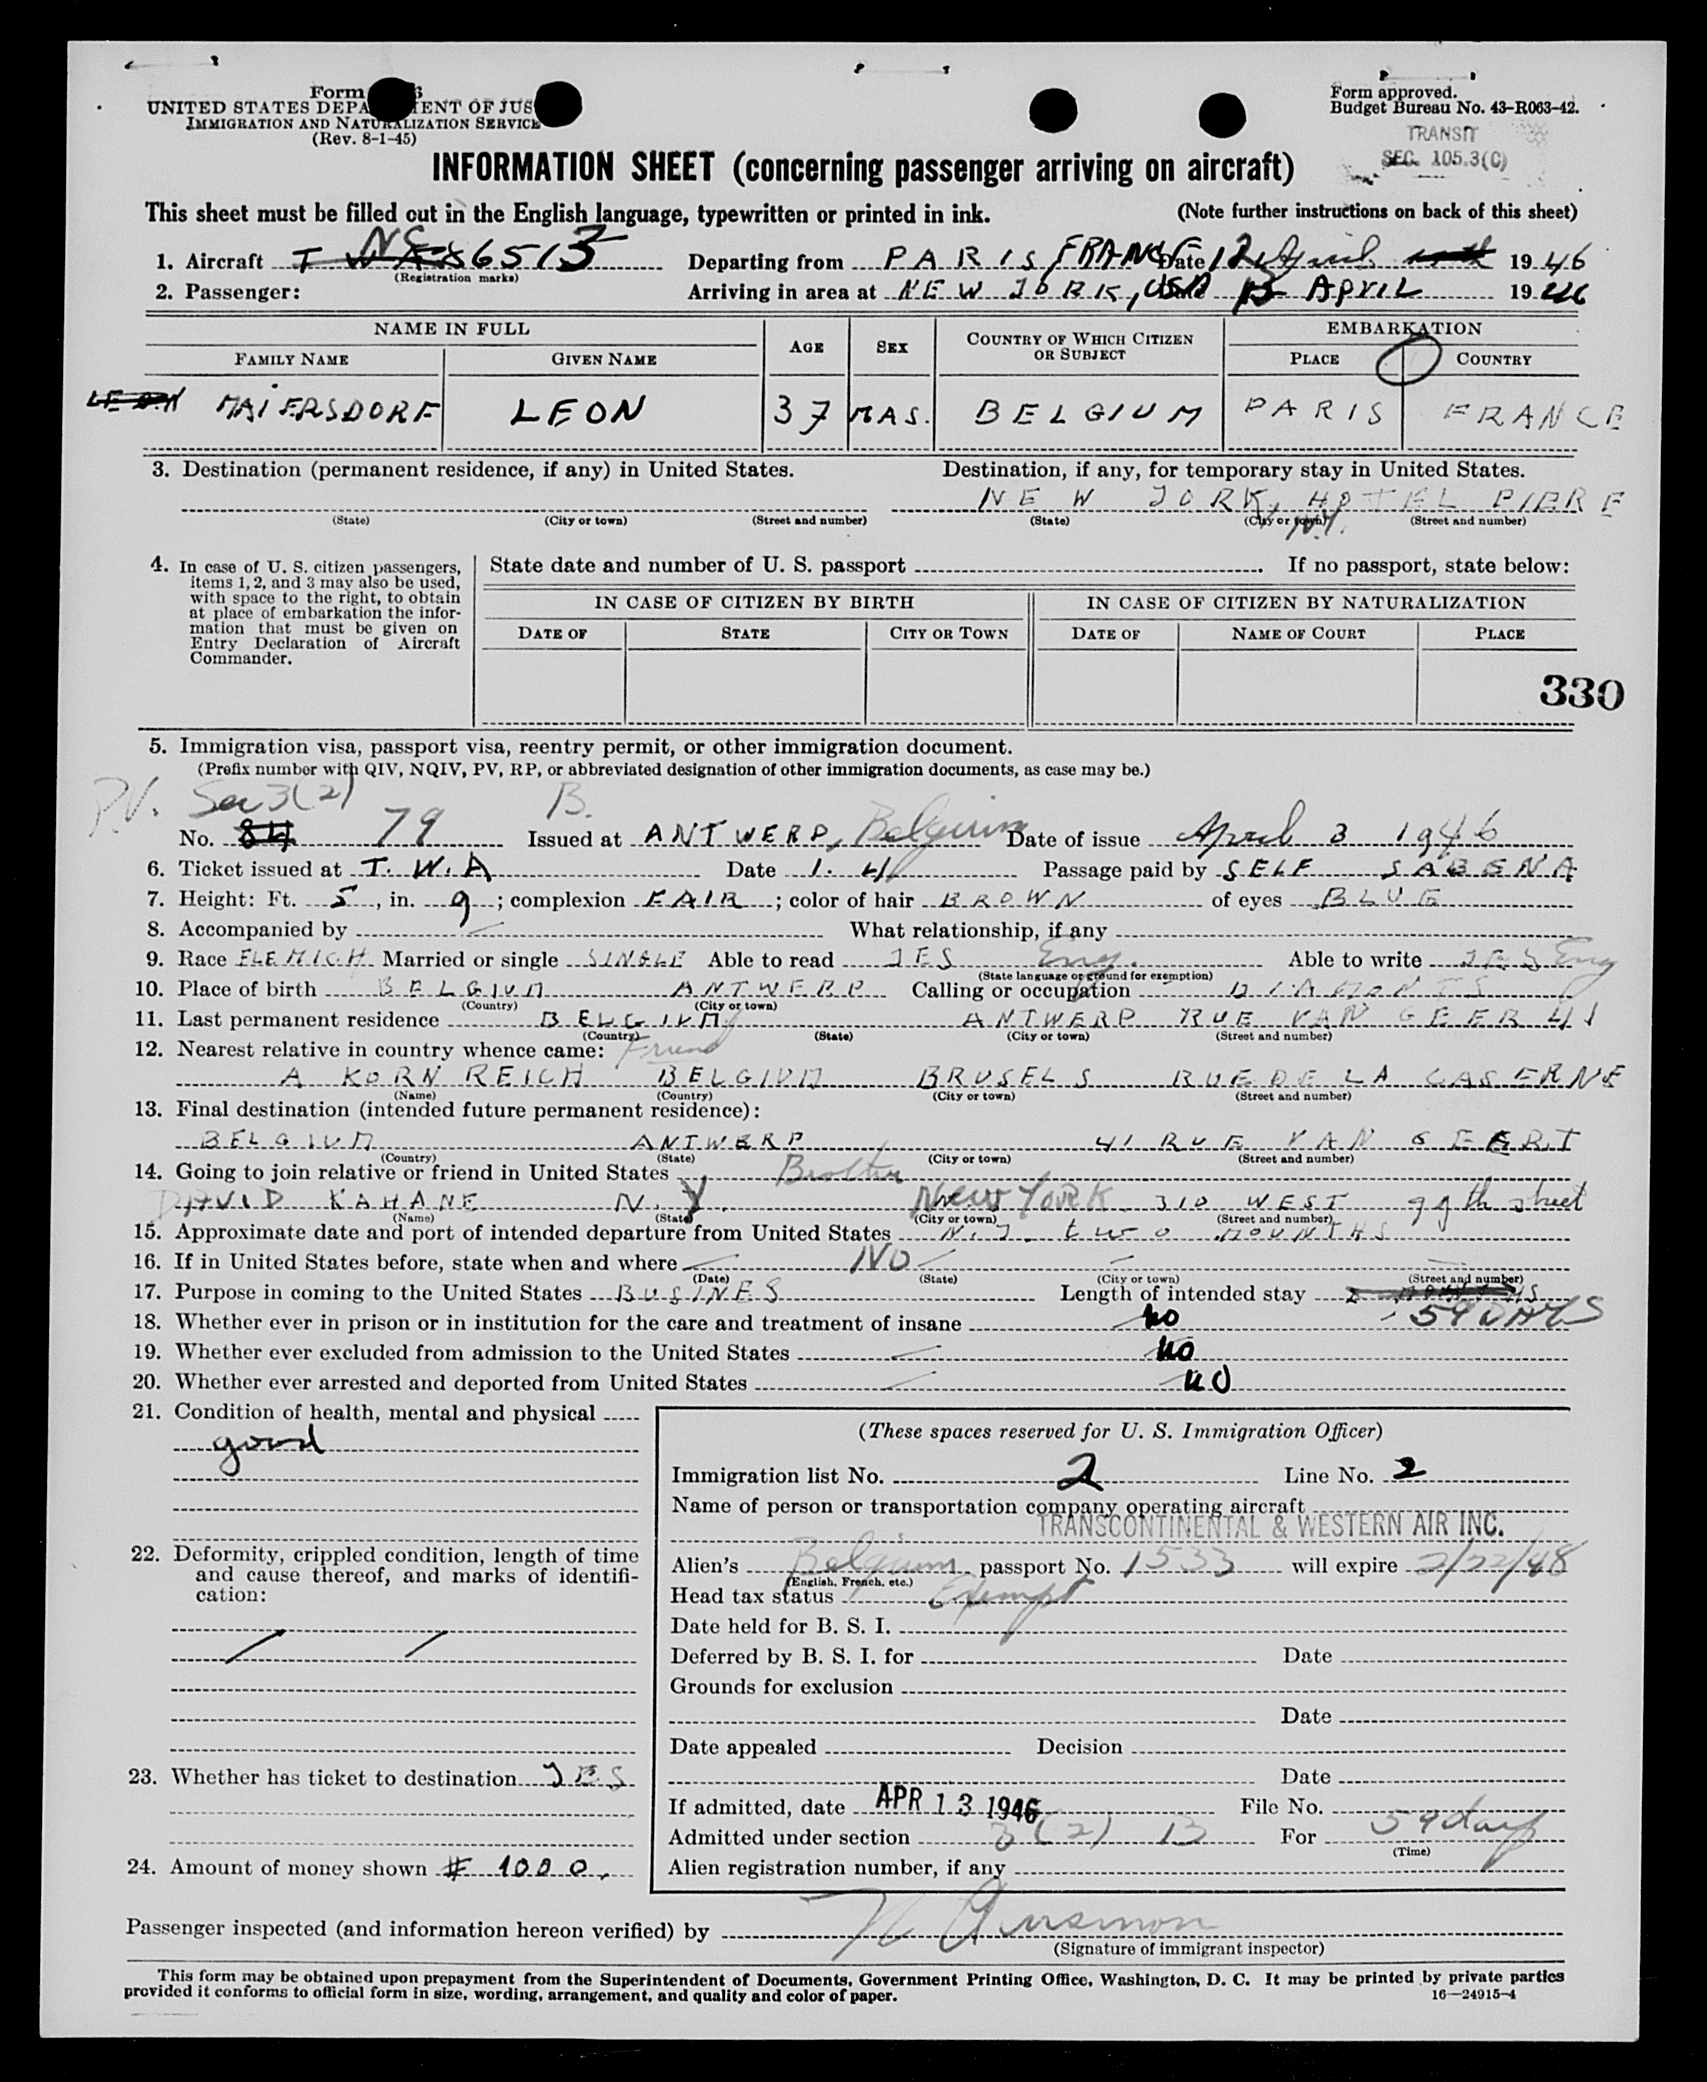 Form
UNITED STATES DEPA ENT OF JUS
IMMIGRATION AND NATURALIZATION SERVICE
(Rev. 8-1-45)
Form approved.
Budget Bureau No. 43-R063-42.
TRANSIT
SEC. 105.3(C)
INFORMATION SHEET (concerning passenger arriving on aircraft)
This sheet must be filled out in the English language, typewritten or printed in ink. (Note further instructions on back of this sheet)
1. Aircraft 86513 Departing from PARIS FRANCE Date 12 April 1946
(Registration marks)
2. Passenger: Arriving in area at NEW JORK, USA 13 APRIL 1946
NAME IN FULL AGE SEX COUNTRY OF WHICH CITIZEN OR SUBJECT EMBARKATION
FAMILY NAME GIVEN NAME PLACE COUNTRY
LEON MAIERSDORF LEON 37 MAS. BELGIUM PARIS FRANCE
3. Destination (permanent residence, if any) in United States. Destination, if any, for temporary stay in United States.
NEW JORK, HOTEL PIERE
(State) (City or town) (Street and number) (State) (City or town) (Street and number)
N.Y.
4. In case of U. S. citizen passengers, items 1, 2, and 3 may also be used, with space to the right, to obtain at place of embarkation the information that must be given on Entry Declaration of Aircraft Commander.
State date and number of U. S. passport If no passport, state below:
IN CASE OF CITIZEN BY BIRTH IN CASE OF CITIZEN BY NATURALIZATION
DATE OF STATE CITY OR TOWN DATE OF NAME OF COURT PLACE
330
5. Immigration visa, passport visa, reentry permit, or other immigration document.
(Prefix number with QIV, NQIV, PV, RP, or abbreviated designation of other immigration documents, as case may be.)
P.V. Sec 3(2) B.
No. 84 79 Issued at ANTWERP, Belgium Date of issue April 3 1946
6. Ticket issued at T.W.A Date 1. 4 Passage paid by SELF SABENA
7. Height: Ft. 5, in. 9; complexion FAIR; color of hair BROWN of eyes BLUE
8. Accompanied by What relationship, if any
9. Race FLEMICH Married or single SINGLE Able to read JES Eng. Able to write JES Eng
(State language or ground for exemption)
10. Place of birth BELGIUM ANTWERP Calling or occupation DIAMONTS
(Country) (City or town)
11. Last permanent residence BELGIUM ANTWERP RUE VAN GEER 41
(Country) (State) (City or town) (Street and number)
12. Nearest relative in country whence came: Friend
A KORNREICH BELGIUM BRUSELS RUE DE LA CASERNE
(Name) (Country) (City or town) (Street and number)
13. Final destination (intended future permanent residence):
BELGIUM ANTWERP 41 RUE VAN GEERT
(Country) (State) (City or town) (Street and number)
14. Going to join relative or friend in United States Brother
DAVID KAHANE N.Y. New York 310 WEST 99th street
(Name) (State) (City or town) (Street and number)
15. Approximate date and port of intended departure from United States N.J. two MOUNTHS
16. If in United States before, state when and where NO
(Date) (State) (City or town) (Street and number)
17. Purpose in coming to the United States BUSINES Length of intended stay
59 DAYS
18. Whether ever in prison or in institution for the care and treatment of insane no
19. Whether ever excluded from admission to the United States no
20. Whether ever arrested and deported from United States no
21. Condition of health, mental and physical
good
22. Deformity, crippled condition, length of time and cause thereof, and marks of identification:
23. Whether has ticket to destination JES
24. Amount of money shown $ 1000.
(These spaces reserved for U. S. Immigration Officer)
Immigration list No. 2 Line No. 2
Name of person or transportation company operating aircraft
TRANSCONTINENTAL & WESTERN AIR INC.
Alien's Belgium passport No. 1533 will expire 2/22/48
(English, French, etc.)
Head tax status Exempt
Date held for B. S. I.
Deferred by B. S. I. for Date
Grounds for exclusion
Date
Date appealed Decision
Date
If admitted, date APR 13 1946 File No.
Admitted under section 3(2) 13 For 59 days
(Time)
Alien registration number, if any
Passenger inspected (and information hereon verified) by
(Signature of immigrant inspector)
This form may be obtained upon prepayment from the Superintendent of Documents, Government Printing Office, Washington, D. C. It may be printed by private parties
provided it conforms to official form in size, wording, arrangement, and quality and color of paper. 16—24915-4